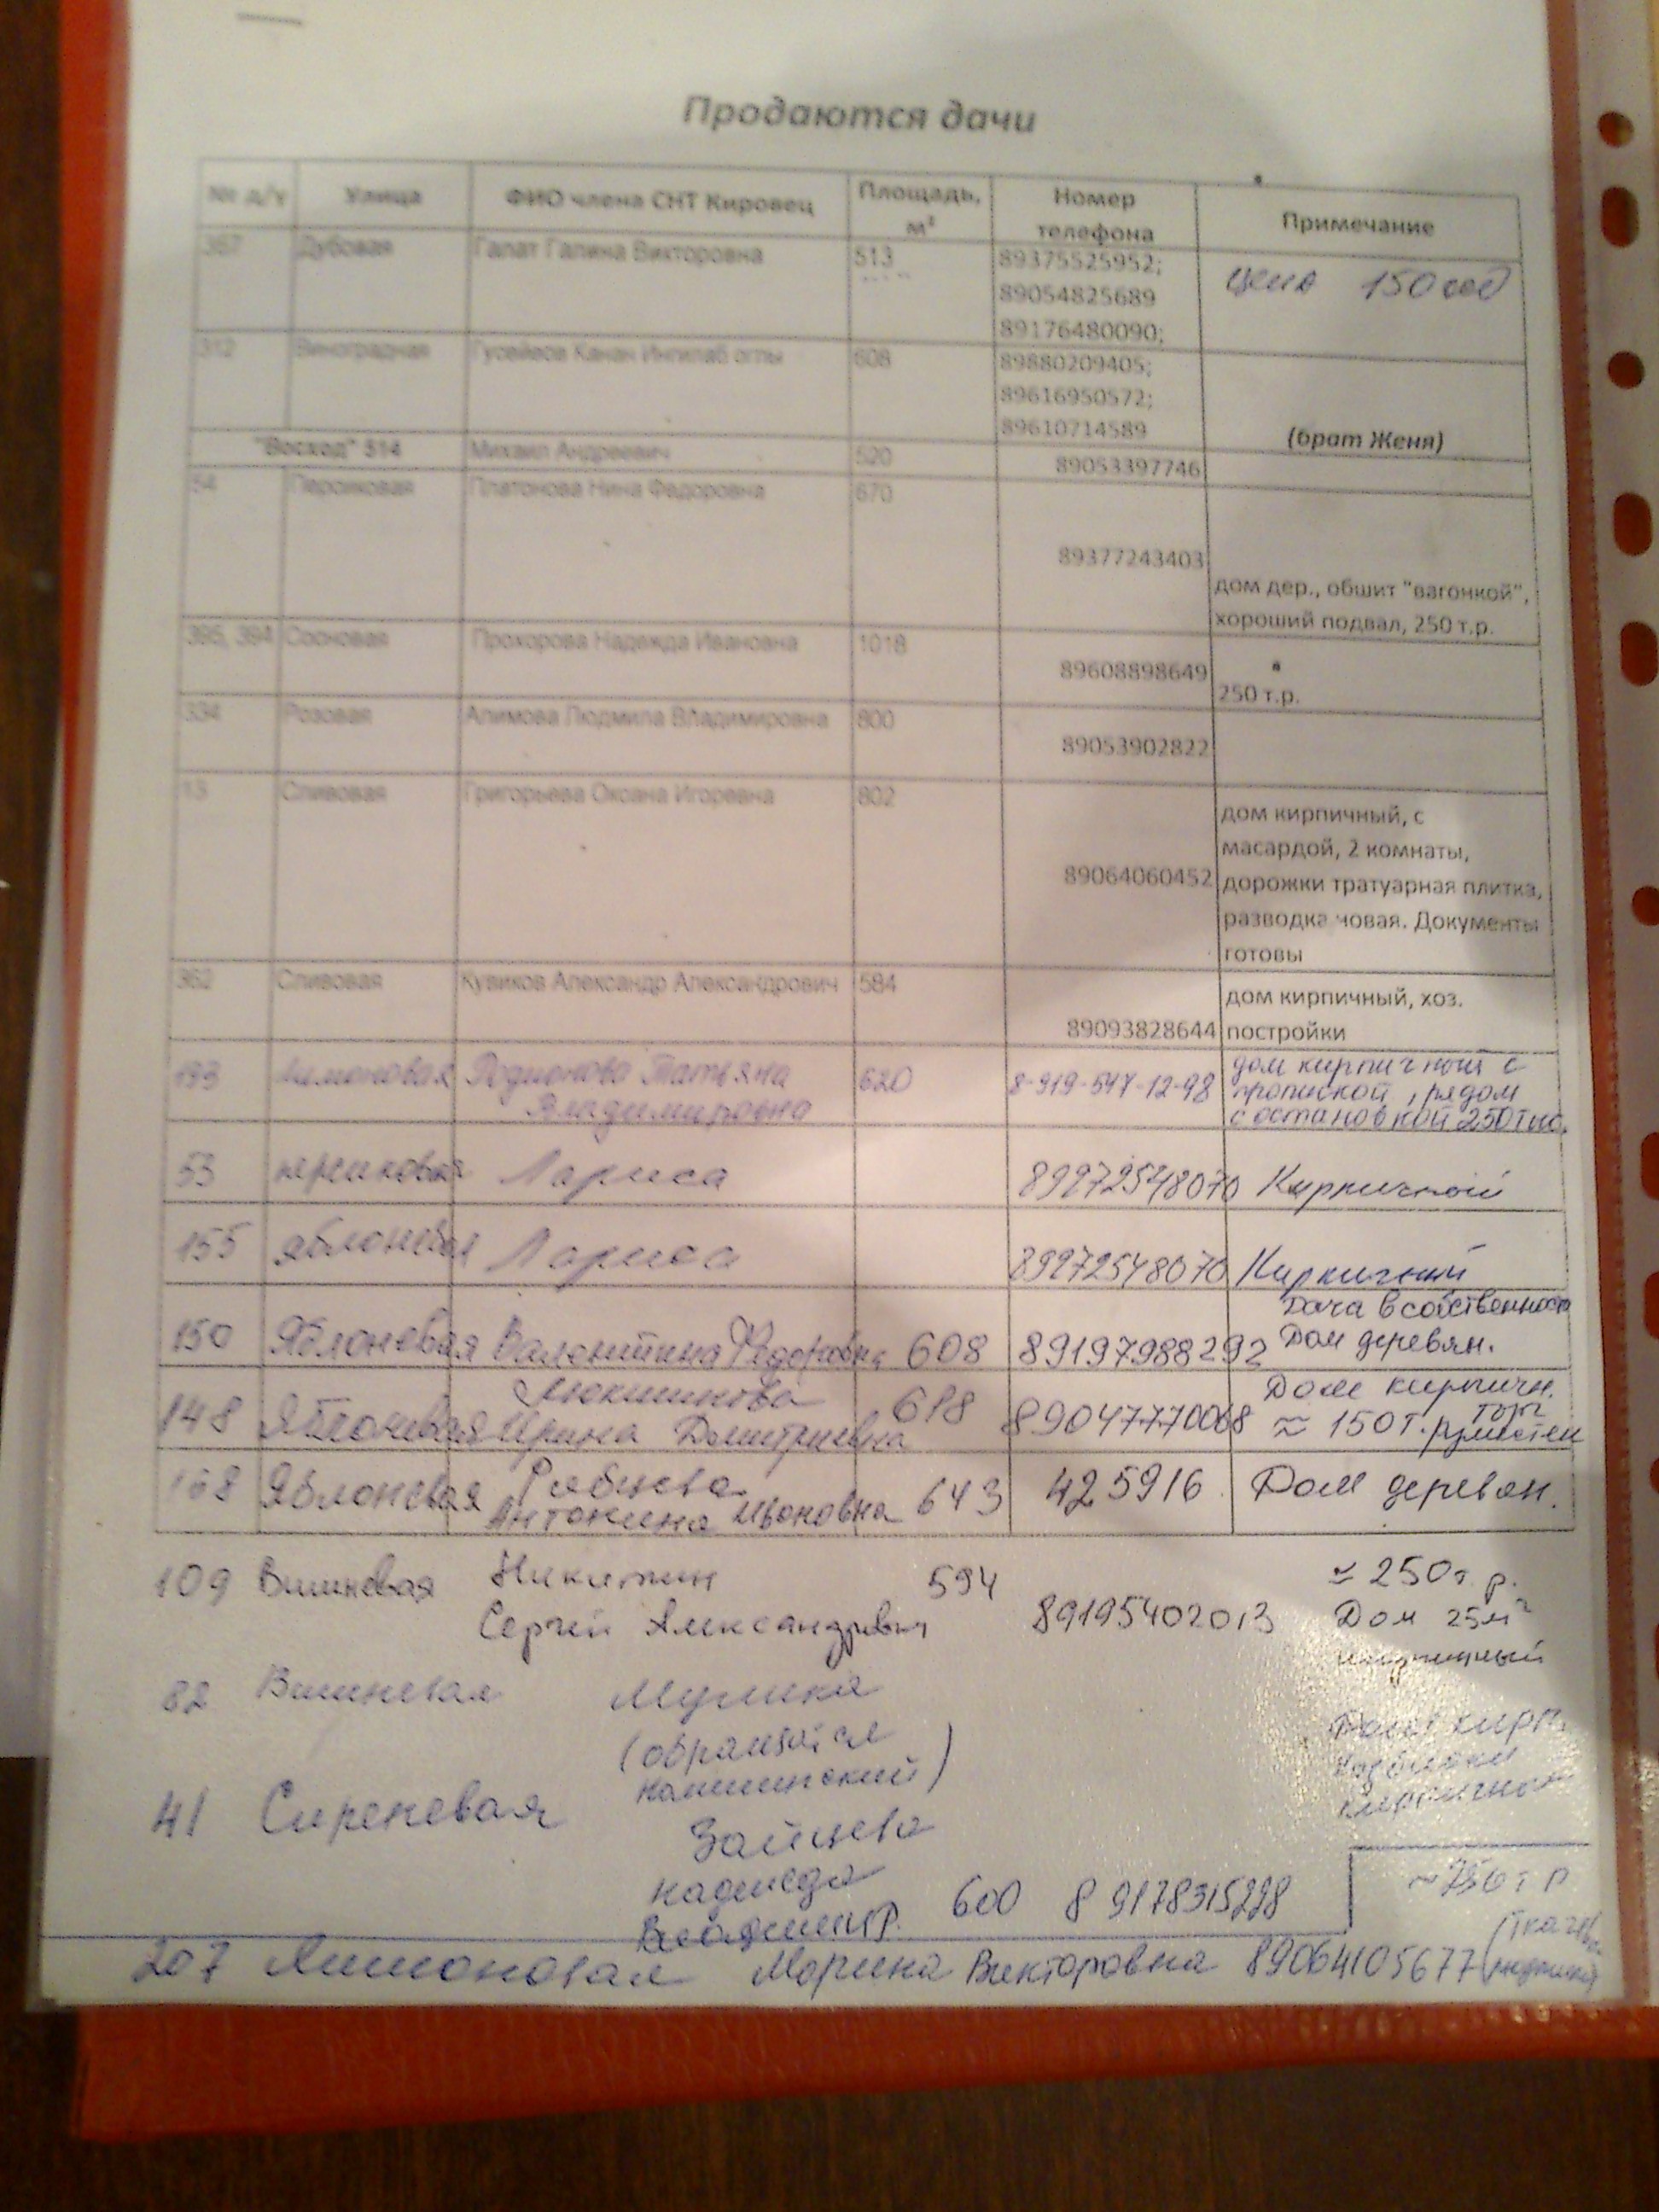 Продаются дачи
№ д/у Улица ФИО члена СНТ Кировец Площадь, м² Номер телефона Примечание
367 Дубовая Галат Галина Викторовна 513 89375525952;
89054825689 цена 150
89176480090;
312 Виноградная Гусейнов Канан Ингилаб оглы 608 89880209405;
89616950572;
89610714589 (брат Женя)
"Восход" 514 Михаил Андреевич 520 89053397746
54 Персиковая Платонова Нина Федоровна 670
89377243403
дом дер., обшит "вагонкой",
хороший подвал, 250 т.р.
395, 394 Сосновая Прохорова Надежда Ивановна 1018
89608898649
250 т.р.
334 Розовая Алимова Людмила Владимировна 800
89053902822
13 Сливовая Григорьева Оксана Игоревна 802
дом кирпичный, с
масардой, 2 комнаты,
89064060452 дорожки тратуарная плитка,
разводка новая. Документы
готовы
362 Сливовая Кувиков Александр Александрович 584
дом кирпичный, хоз.
89093828644 постройки
193 Лимоновая Родионова Татьяна 620 8-919-547-12-98 дом кирпичный с
Владимировна пропиской, рядом
с остановкой 250
53 персиковая Лариса 89272548070 Кирпичный
155 яблоневая Лариса 89272548070 Кирпичный
Дача в собственности
150 Яблоневая Валентина Федоровна 608 89197988292 Дом деревян.
618 Дом кирпичн.
148 Яблоневая Ирина Дмитриевна 89047770068 ≈ 150 т.р. торг уместен
168 Яблоневая Рябцева 643 425916 Дом деревян.
Антонина Ивановна
109 Вишневая Никитин 594 ≈ 250 т. р.
Сергей Александрович 89195402013 Дом 25м²
кирпичный
82 Вишневая
41 Сиреневая
Зайцева
надежда
Владимир. 600 8 9178315228
207 Лимоновая Марина Викторовна 89064105677